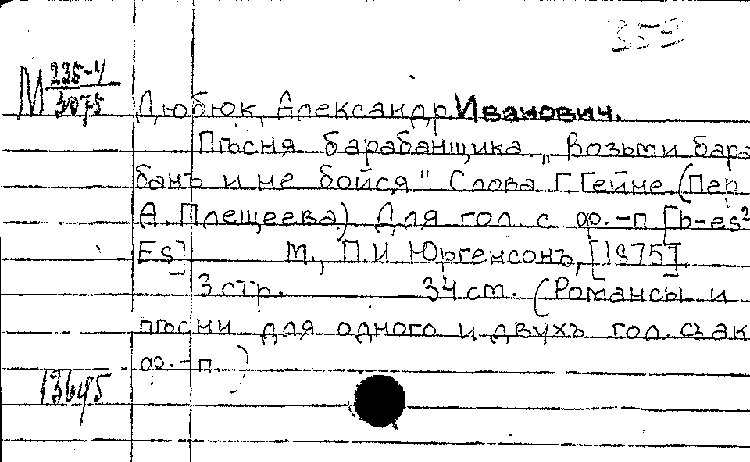 359
М 235-4
3075
Дюбюк, Александр Иванович.
Пѣсня барабанщика „Возьми бара
банъ и не бойся" Слова Г. Гейне (Пер
А. Плещеева) Для гол. с фо.-п [b-es²
Es] М., П. И. Юргенсонъ, [1875].
3 стр. 34 см. (Романсы и
пѣсни для одного и двухъ гол. съ ак
фо.-п.)
13645